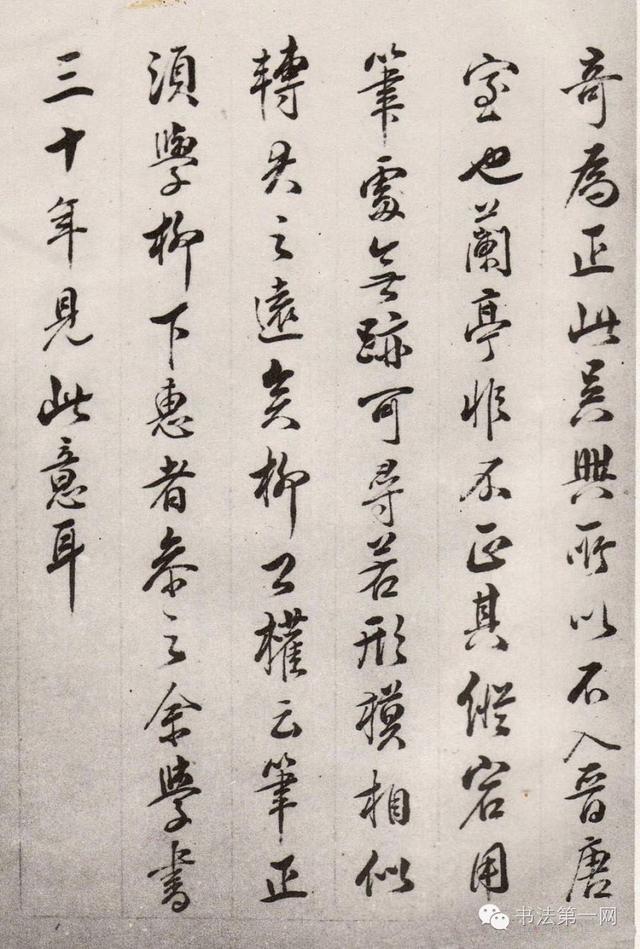 奇爲正此吳興所以不入晉唐
室也蘭亭非不正其縱宕用
筆處無跡可尋若形模相似
轉去之遠矣柳公權云筆正
須學柳下惠者參之余學書
三十年見此意耳
书法第一网